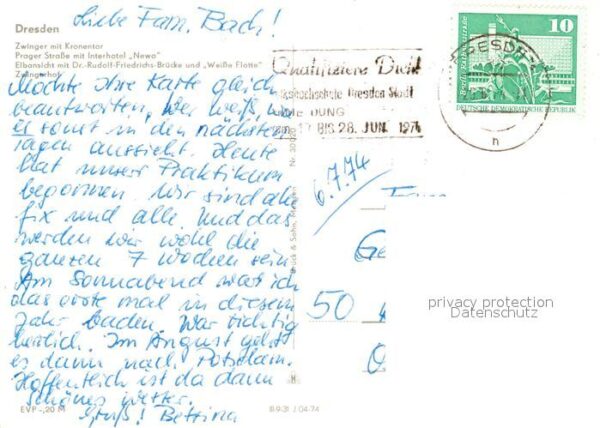 Liebe Fam. Bach!
Dresden
Zwinger mit Kronentor
Prager Straße mit Interhotel „Newa"
Elbansicht mit Dr.-Rudolf-Friedrichs-Brücke und „Weiße Flotte"
Zwingerhof
Möchte Ihre Karte gleich
beantworten, wer weiß, wie
es sonst in den nächsten
Tagen aussieht. Heute
hat unser Praktikum
begonnen. Wir sind alle
fix und alle. Und das
werden wir wohl die
ganzen 7 Wochen sein.
Am Sonnabend war ich
das erste mal in diesem
Jahr baden. War richtig
herrlich. Im August geht
es dann nach Potsdam.
Hoffentlich ist da dann
schönes Wetter.
Gruß! Bettina
EVP -,20 M
B 9-31 / 04-74
Qualifiziere Dich
Volkshochschule Dresden Stadt
BIS 28. JUN. 1974
DRESDEN
n
10
DEUTSCHE DEMOKRATISCHE REPUBLIK
6.7.74
Fam
Ge
50
privacy protection
Datenschutz